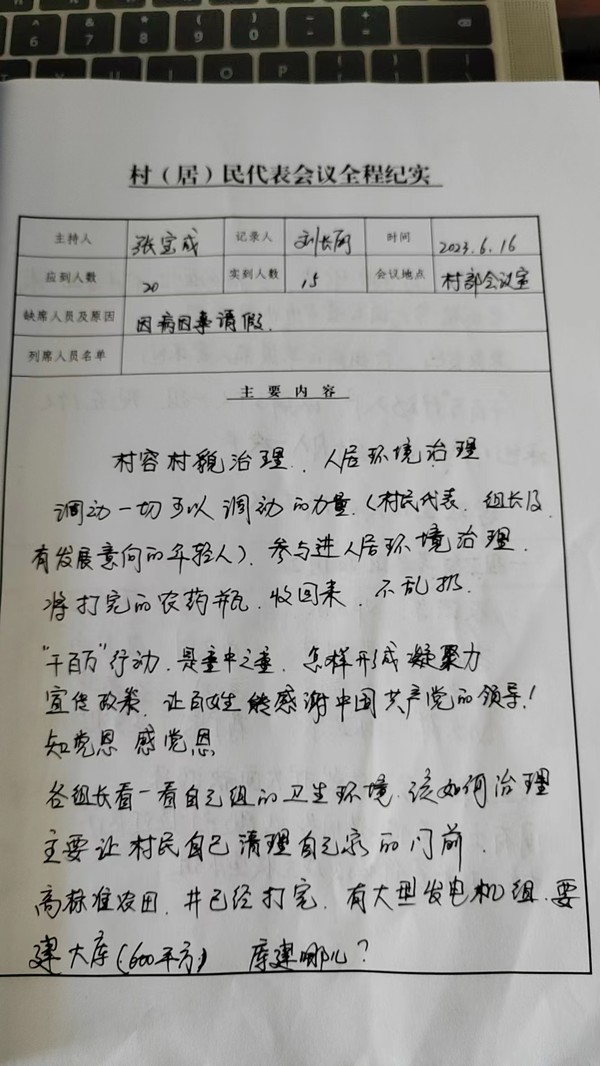 村（居）民代表会议全程纪实
主持人 张宝成 记录人 刘长河 时间 2023.6.16
应到人数 20 实到人数 15 会议地点 村部会议室
缺席人员及原因 因病因事请假.
列席人员名单
主要内容
村容村貌治理、人居环境治理
调动一切可以调动的力量.（村民代表、组长及
有发展意向的年轻人）、参与进人居环境治理.
将打完的农药瓶、收回来、不乱扔.
“千百万”行动、是重中之重、怎样形成凝聚力
宣传政策、让百姓能感谢中国共产党的领导！
知党恩 感党恩
各组长看一看自己组的卫生环境、该如何治理
主要让村民自己清理自己家的门前.
高标准农田、井已经打完、有大型发电机组、要
建大库（600平方） 库建哪儿？